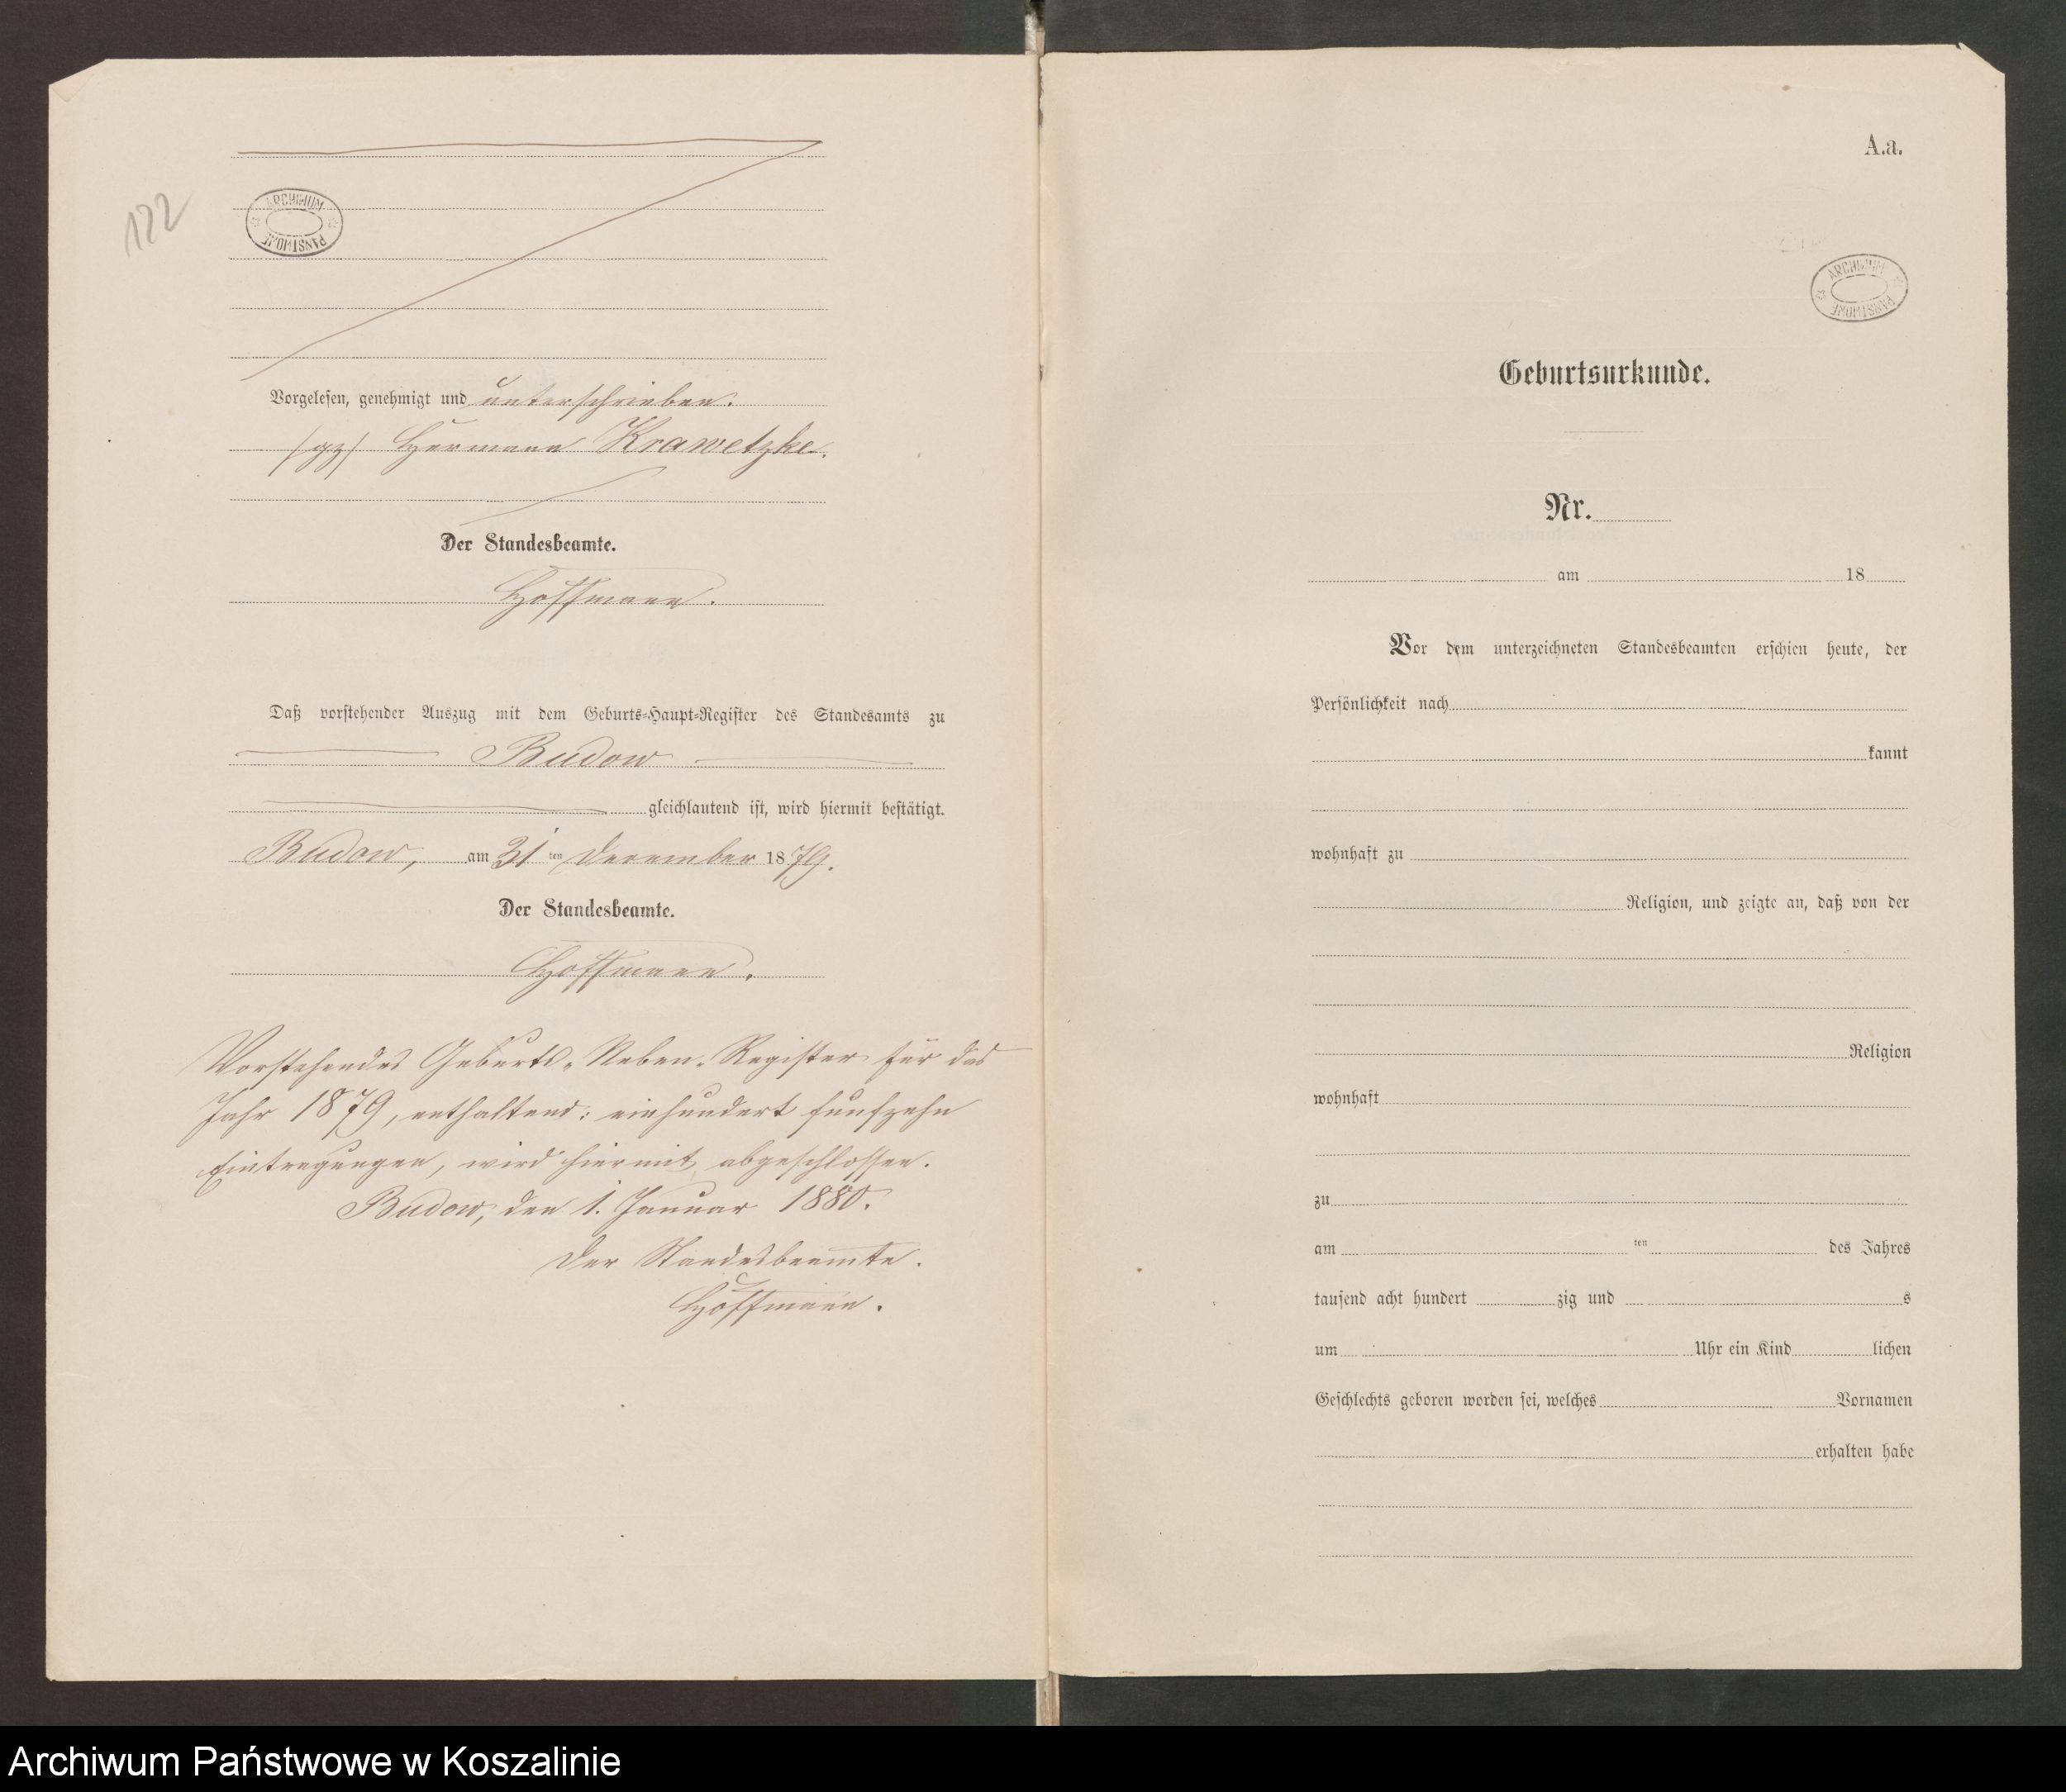 122
ARCHIWUM PAŃSTWOWE
Vorgelesen, genehmigt und unterschrieben.
(gz) Hermann Krawetzke.
Der Standesbeamte.
Hoffmann.
Daß vorstehender Auszug mit dem Geburts-Haupt-Register des Standesamts zu
Budow
gleichlautend ist, wird hiermit bestätigt.
Budow, am 31 ten December 1879.
Der Standesbeamte.
Hoffmann.
Vorstehendes Geburts-Neben-Register für das
Jahr 1879, enthaltend: einhundert funfzehn
Eintragungen, wird hiermit abgeschlossen.
Budow, den 1. Januar 1880.
Der Standesbeamte.
Hoffmann.
A.a.
ARCHIWUM PAŃSTWOWE
Geburtsurkunde.
Nr.
am 18
Vor dem unterzeichneten Standesbeamten erschien heute, der
Persönlichkeit nach
kannt
wohnhaft zu
Religion, und zeigte an, daß von der
Religion
wohnhaft
zu
am ten des Jahres
tausend acht hundert zig und s
um Uhr ein Kind lichen
Geschlechts geboren worden sei, welches Vornamen
erhalten habe
Archiwum Państwowe w Koszalinie